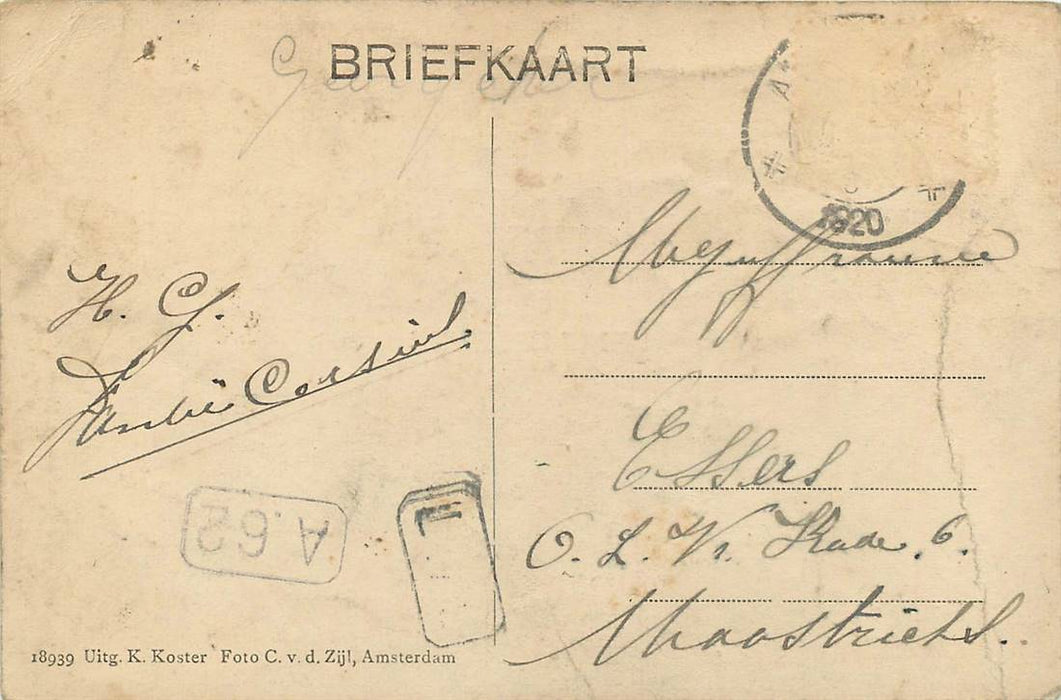 BRIEFKAART
1920
H. G.
André
Mejuffrouw
Essers
O. L. Vr. Kade. 6.
Maastricht.
A.62
18939 Uitg. K. Koster Foto C. v. d. Zijl, Amsterdam